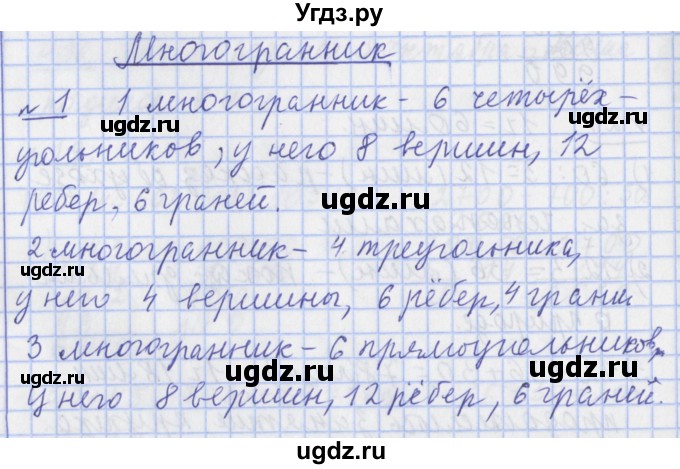 Угдз.ру
Многогранник
№1 1 многогранник - 6 четырёх-
угольников, у него 8 вершин, 12
ребер, 6 граней.
2 многогранник - 4 треугольника,
у него 4 вершины, 6 рёбер, 4 грани
3 многогранник - 6 прямоугольников,
у него 8 вершин, 12 рёбер, 6 граней.
ugdz.ru
ugdz.ru
ugdz.ru
ugdz.ru
ugdz.ru
ugdz.ru
ugdz.ru
ugdz.ru
ugdz.ru
ugdz.ru
ugdz.ru
ugdz.ru